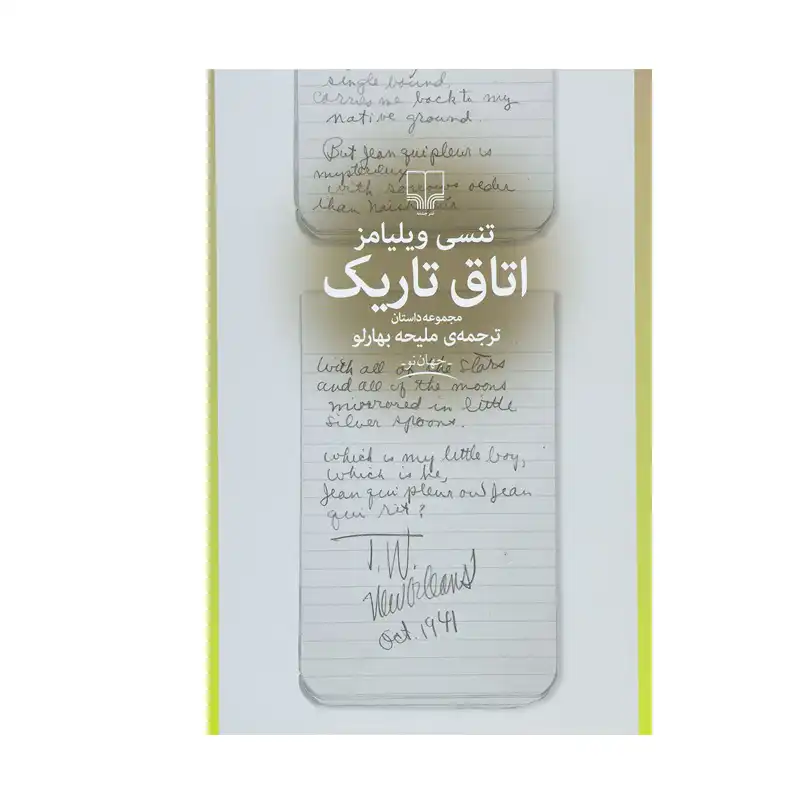 single bound,
carries me back to my
native ground.
But Jean qui pleur is
mysterious
with sorrows older
than
نشر چشمه
تنسی ویلیامز
اتاق تاریک
مجموعه داستان
ترجمه‌ی ملیحه بهارلو
- جهان نو -
With all of the stars
and all of the moons
mirrored in little
silver spoons.
which is my little boy,
which is he,
Jean qui pleur ou Jean
qui rit?
T.W.
New Orleans
Oct. 1941